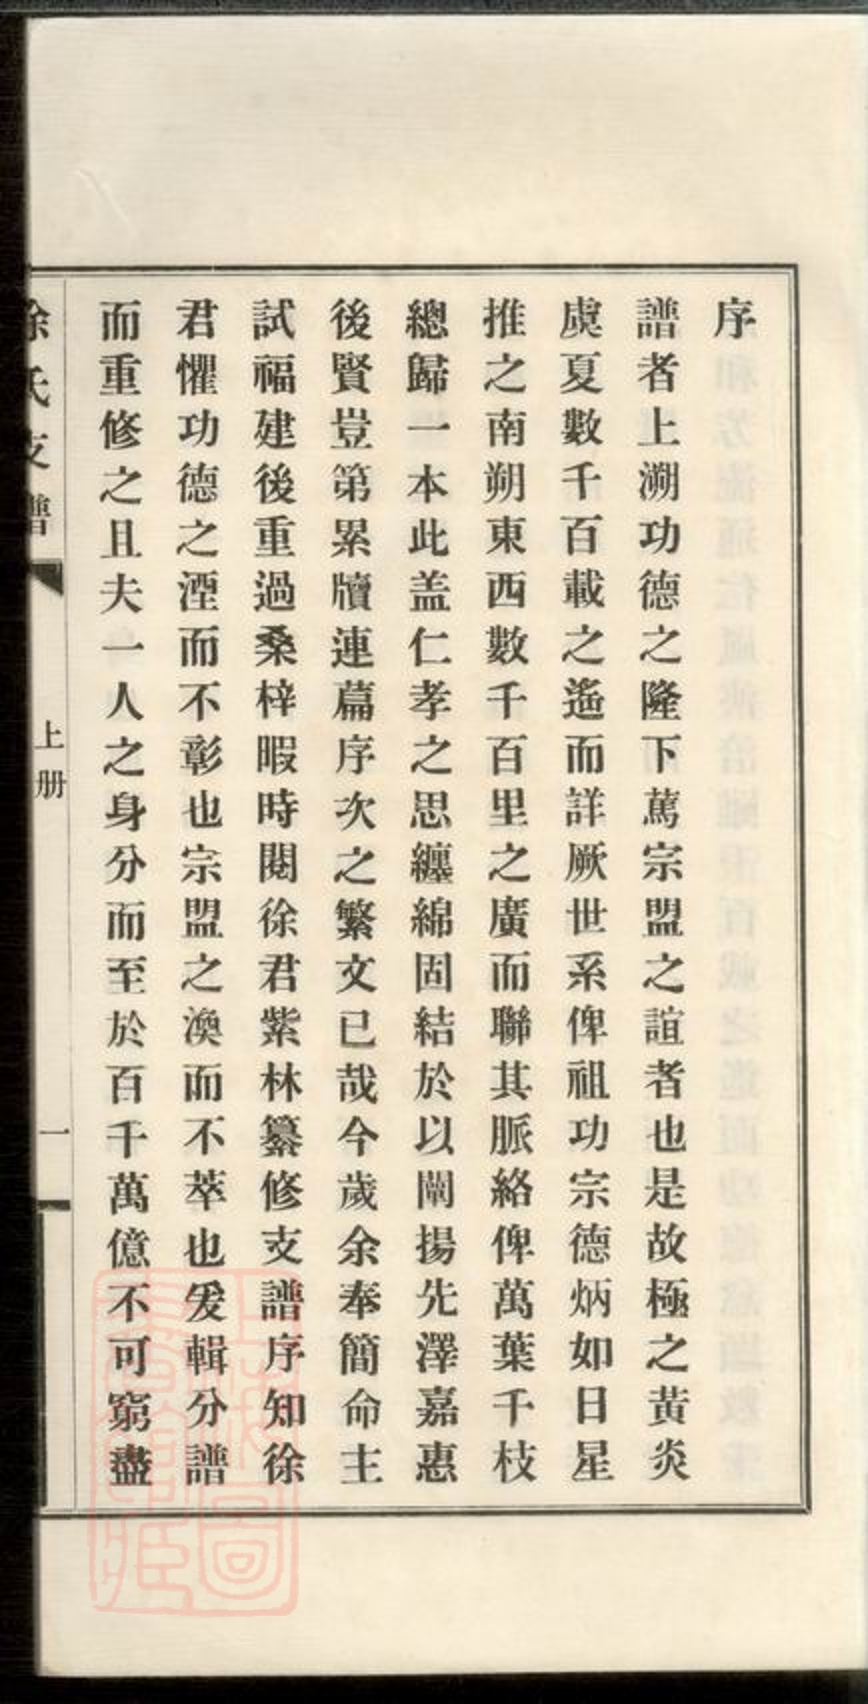 序
譜者上溯功德之隆下蔦宗盟之誼者也是故極之黃炎
虞夏數千百載之遙而詳厥世系俾祖功宗德炳如日星
推之南朔東西數千百里之廣而聯其脈絡俾萬葉千枝
總歸一本此盖仁孝之思纏綿固結於以闡揚先澤嘉惠
後賢豈第累牘連篇序次之繁文已哉今歲余奉簡命主
試福建後重過桑梓暇時閱徐君紫林纂修支譜序知徐
君懼功德之湮而不彰也宗盟之渙而不萃也爰輯分譜
而重修之且夫一人之身分而至於百千萬億不可窮盡
徐氏支譜
上册
一
上海圖書館藏